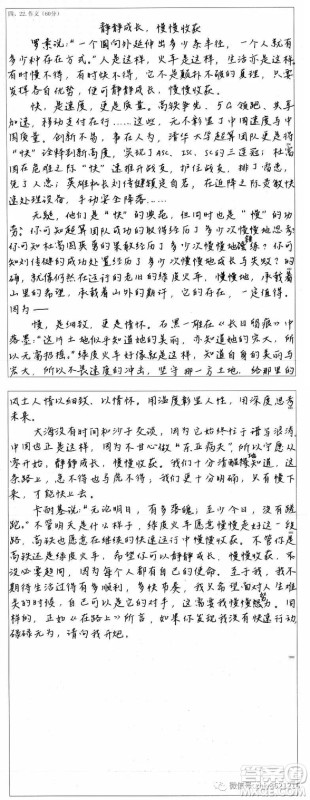 四、22.作文(60分)
静静成长，慢慢收获
罗素说："一个圆向外延伸出多少条半径，一个人就有
多少种存在方式。"人是这样，火车是这样，生活亦是这样。
有时慢不得，有时快不得，它不是颠扑不破的真理，只要
发挥各自优势，便可静静成长，慢慢收获。
快，是速度，更是质量。高铁争先，5G领跑，共享
加速，移动支付在行……这些，无不彰显了中国速度与中
国质量。创新不易，事在人为，清华大学超算团队更是将
"快"诠释到新高度，实现了ASC、ISC、SC的三连冠；杜富
国在危难之际"快"速推开战友，护住战友，排了雷患，
凭了人忠；英雄机长刘传健镇定自若，在迫降之际更敏快
速处理设备，手动安全降落……
无疑，他们是"快"的典范，但同时也是"慢"的功
劳。你可知超算团队成功的取得经历了多少次慢慢地思考？
你可知杜富国英勇的果敢经历了多少次慢慢地锻炼？你可
知刘传健的成功处置经历了多少次慢慢地成长与失败？的
确，就像仍然在运行的老旧的绿皮火车，慢慢地，承载着
山里的希望，承载着山外的期许，它的存在，一定值得。
因为——
慢，是细致，更是情怀。石黑一雄在《长日留痕》中
落墨："这片土地似乎知道她的美丽，亦知道她的宏大，所以
无需招摇。"绿皮火车好像就是这样，知道自身的美丽与
宏大，所以不畏速度的冲击，坚守那一方土地，给那里的
风土人情以细致，以情怀。用温度彰显人性，用深度思考
未来。
大海没有时间和沙子交谈，因为它始终忙于谱写浪涛
中国也正是这样，因为不甘心做"东亚病夫"，所以宁愿从
零开始，静静成长，慢慢收获。我们十分清醒地知道，这
条路上，急不得也与荒不得；我们更十分明确，只有慢下
来，才能快上去。
卡耐基说："无论明日，有多落魄；至少今日，没有颓
跑。"不管明天是什么样子，绿皮火车愿意慢慢走好这一段
路，高铁也愿意在继续的快速运行中慢慢收获。不管你是
高铁还是绿皮火车，希望你可以静静成长，慢慢收获，不
没必要赶同，因为每个人都有自己的使命。至于我，我不
期待生活过得有多顺利，多快节奏，我只希望面对人生难
关的时候，自己可以是它的对手，这需要我慢慢努力。同
样的，正如《在路上》所言，如果你发现我没有快速行动
碌碌无为，请向我开炮。
答案圈
微信号